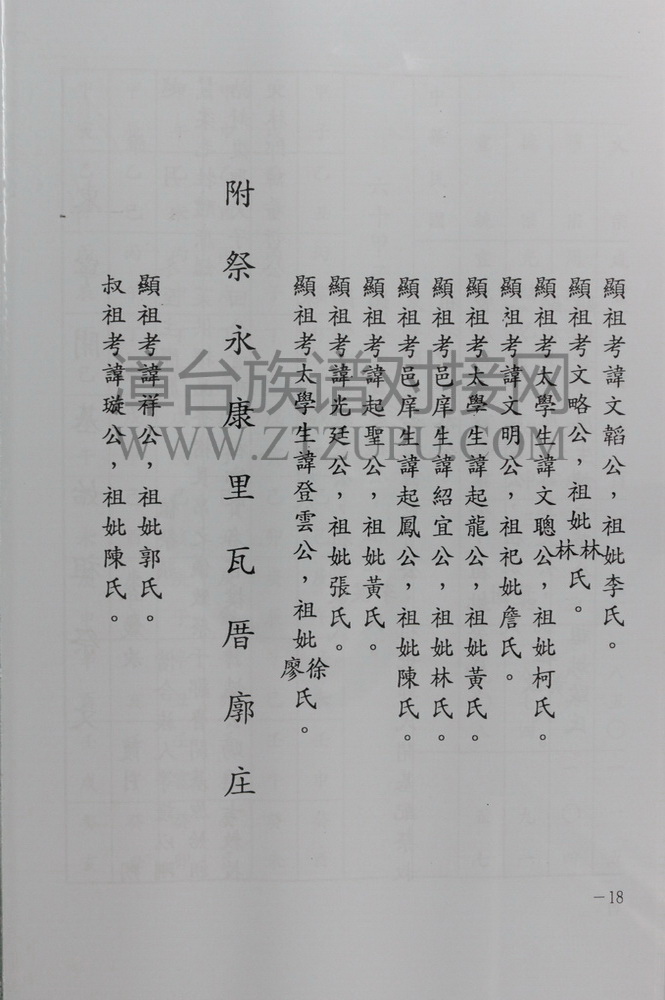 顯祖考諱文韜公，祖妣李氏。
顯祖考文略公，祖妣林林氏。
顯祖考太學生諱文聰公，祖妣柯氏。
顯祖考諱文明公，祖祀妣詹氏。
顯祖考太學生諱起龍公，祖妣黃氏。
顯祖考邑庠生諱紹宜公，祖妣林氏。
顯祖考邑庠生諱起鳳公，祖妣陳氏。
顯祖考諱起聖公，祖妣黃氏。
顯祖考諱光廷公，祖妣張氏。
顯祖考太學生諱登雲公，祖妣徐廖氏。
附祭永康里瓦厝廓庄
顯祖考諱祥公，祖妣郭氏。
叔祖考諱璇公，祖妣陳氏。
－18
漳台族谱对接网
WWW.ZTZUPU.COM